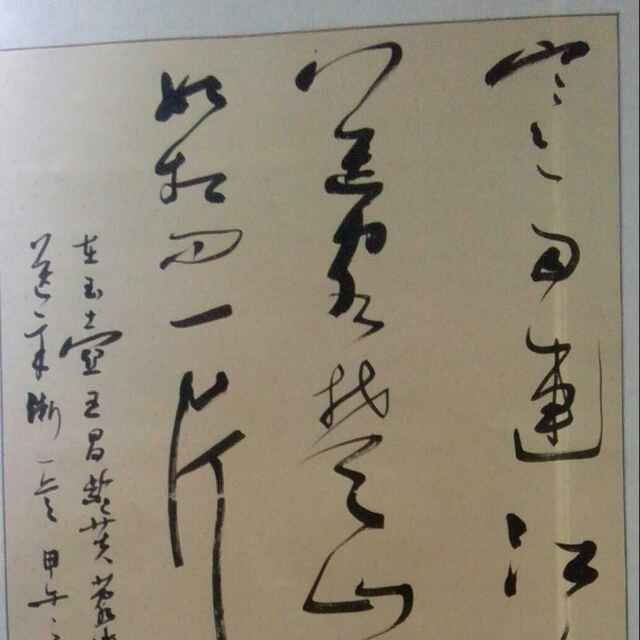 寒雨連江
明送客楚山
如相問一片
在玉壺王昌齡芙蓉樓
送辛漸一首甲午